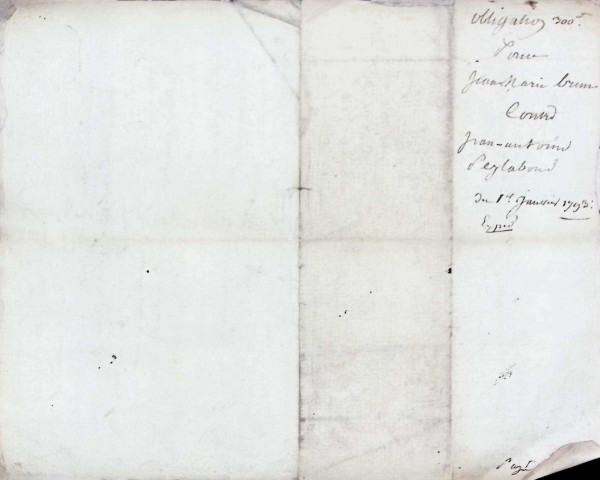 obligation 300#
Pour
Jean Marie brun
Contre
Jean-antoine
Peylaboud
du 1er Janvier 1793.
Exped